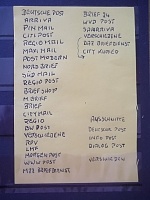 DEUTSCHE POST
ARRIVA
PIN MAIL
CITIPOST
REGIO MAIL
MAXI POST
POST MODERN
NORD BRIEF
SÜD MAIL
REGIO POST
BRIEFSHOP
M BRIEF
BRIEF
CITY MAIL
REGIO
BW POST
VERSCHIEDENE
RPV
LMF
MORGEN POST
WWW POST
MZZ BRIEFDIENST
BRIEF 24
WVD POST
VERSCHIEDENE
BRIEFDIENST
CITY KURIER
AUSSCHNITTE
DEUTSCHE POST
INFO POST
DIALOG POST
VERSCHIEDEN